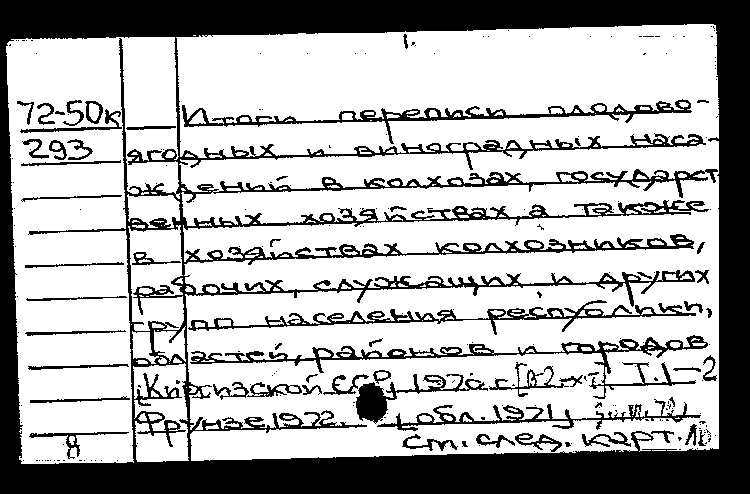 1.
72-50к Итоги переписи плодово-
293 ягодных и виноградных наса-
ждений в колхозах, государст
венных хозяйствах, а также
в хозяйствах колхозников,
рабочих, служащих и других
групп населения республики,
областей, районов и городов
[Киргизской ССР] 1970 г. [В 2-х т.]. Т.1-2
Фрунзе, 1972. [обл. 1971]
8 См. след. карт.